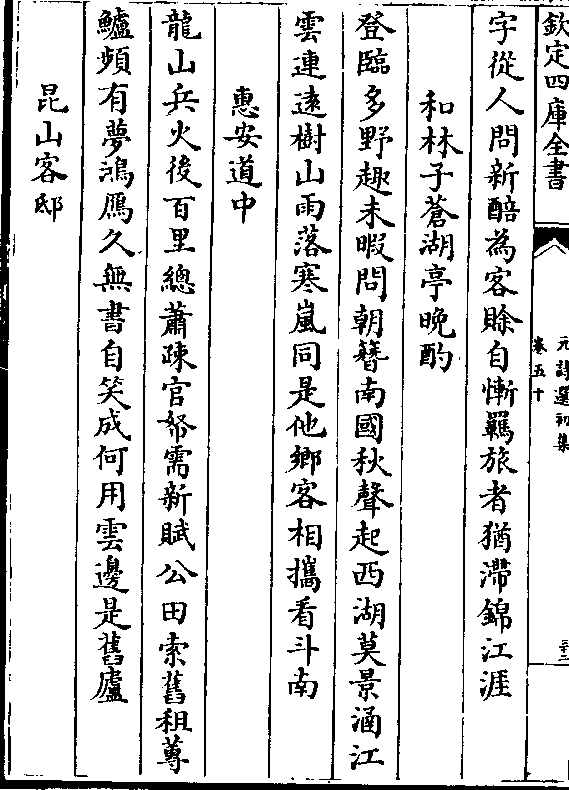 欽定四庫全書
元詩選初集
卷五十
字從人問新醅為客賒自慚羈旅者猶滯錦江涯
和林子蒼湖亭晚酌
登臨多野趣未暇問朝簪南國秋聲起西湖莫景涵江
雲連遠樹山雨落寒嵐同是他鄉客相攜看斗南
惠安道中
龍山兵火後百里總蕭疎官帑需新賦公田索舊租蓴
鱸頻有夢鴻鴈久無書自笑成何用雲邊是舊廬
昆山客邸